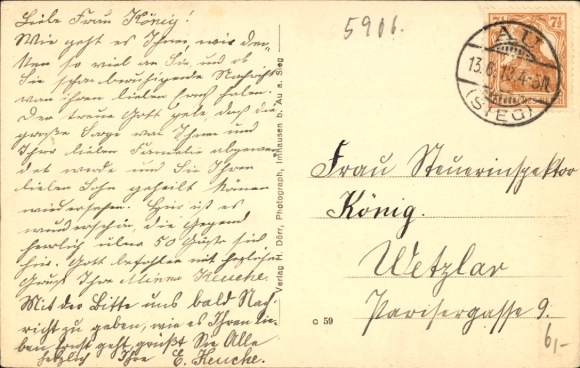 Liebe Frau König!
Wie geht es Ihnen, wir den-
ken so viel an Sie, und ob
Sie schon beruhigende Nachricht
von Ihrem lieben Ernst haben.
Der treue Gott gebe, daß die
große Sorge von Ihnen und
Ihrer lieben Familie abgewen-
det werde und Sie Ihren
lieben Sohn geheilt können
wiedersehen. Hier ist es
wunderschön, die Gegend
herrlich über 50 Gäste sind
hier. Gott befohlen mit herzlichem
Gruß Ihre Minna Keuche.
Mit der Bitte uns bald Nach-
richt zu geben, wie es Ihrem lie-
ben Ernst geht, grüßt Sie Alle
herzlich Ihre E. Keuche.
Verlag H. Dörr, Photograph, Imhausen b. Au a. Sieg
C 59
5906.
7½ 7½
AU
13.6.18.4-5N.
(SIEG)
Frau Steuerinspektor
König.
Wetzlar
Parisergasse 9.
6,-